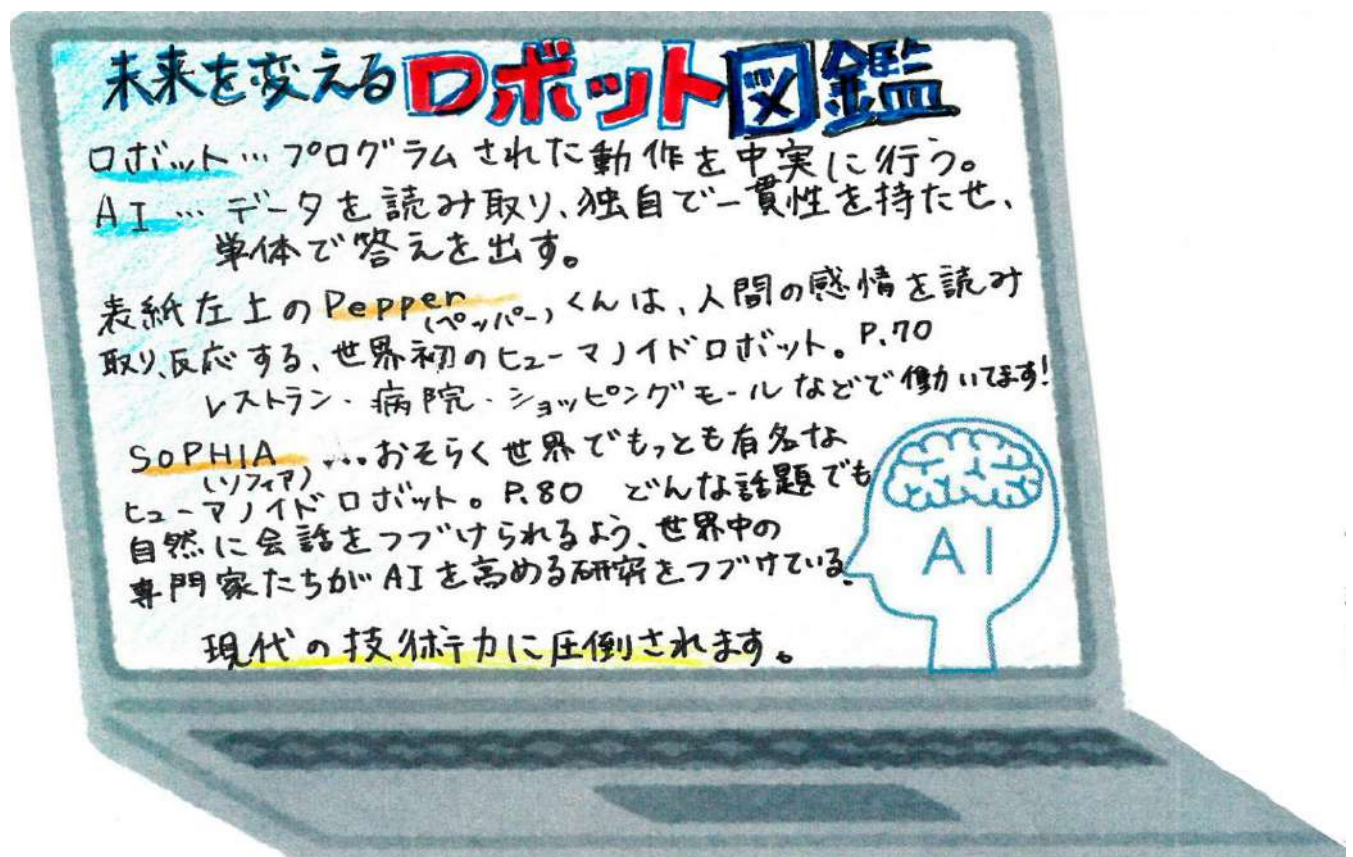 未来を変えるロボット図鑑
ロボット…プログラムされた動作を中実に行う。
AI…データを読み取り、独自で一貫性を持たせ、
単体で答えを出す。
表紙左上のPepper(ペッパー)くんは、人間の感情を読み
取り、反応する、世界初のヒューマノイドロボット。P.70
レストラン・病院・ショッピングモールなどで働いてます!
SOPHIA(ソフィア)…おそらく世界でもっとも有名な
ヒューマノイドロボット。P.80 どんな話題でも
自然に会話をつづけられるよう、世界中の
専門家たちがAIを高める研究をつづけている。
現代の技術力に圧倒されます。
AI